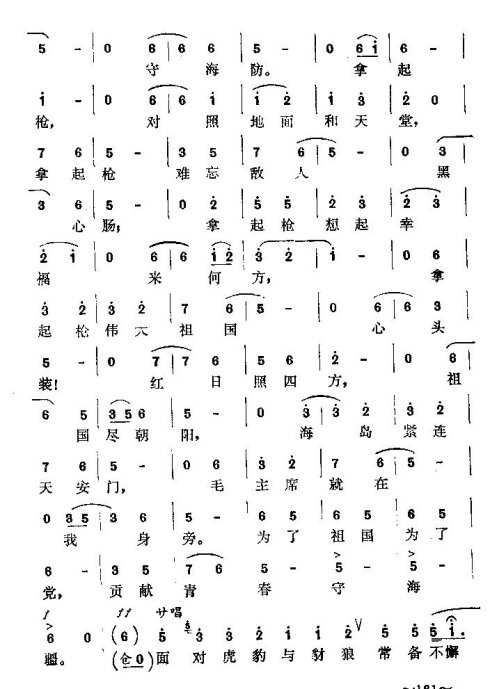 5 - | 0 6 | 6 6 | 5 - | 0 6 1 | 6 -
守海防。 拿起
1 - | 0 2 | 6 1 | 1 2 | 1 3 | 2 0
枪， 对照地面和天堂，
7 6 | 5 - | 3 5 | 7 6 | 5 - | 0 3
拿起枪 难忘敌人 黑
3 6 | 5 - | 0 2 | 5 5 | 2 3 | 2 3
心肠； 拿起枪想起幸
2 1 | 0 6 | 6 1 2 | 3 2 | 1 - | 0 6
福 来何方， 拿
3 2 | 3 2 | 7 6 | 5 - | 0 6 | 6 3
起枪伟大祖国 心头
5 - | 0 7 | 7 6 | 5 6 | 2 - | 0 6
装! 红日照四方， 祖
6 5 | 3 5 6 | 5 - | 0 3 | 3 5 3 | 3 2
国尽朝阳， 海岛紧连
7 6 | 5 - | 0 6 | 3 2 | 7 6 | 5 -
天安门， 毛主席就在
0 3 5 | 3 6 | 5 - | 6 5 | 6 5 | 6 5
我身旁。 为了祖国为了
6 - | 3 5 | 7 6 | 5 - | 5 - | 5 -
党， 贡献青春守海
f ff サ唱
6 0 (6) 5 3 3 2 2 3 2 5 5 5 1.
疆。 (仓0) 面对虎豹与豺狼 常备不懈
～181～